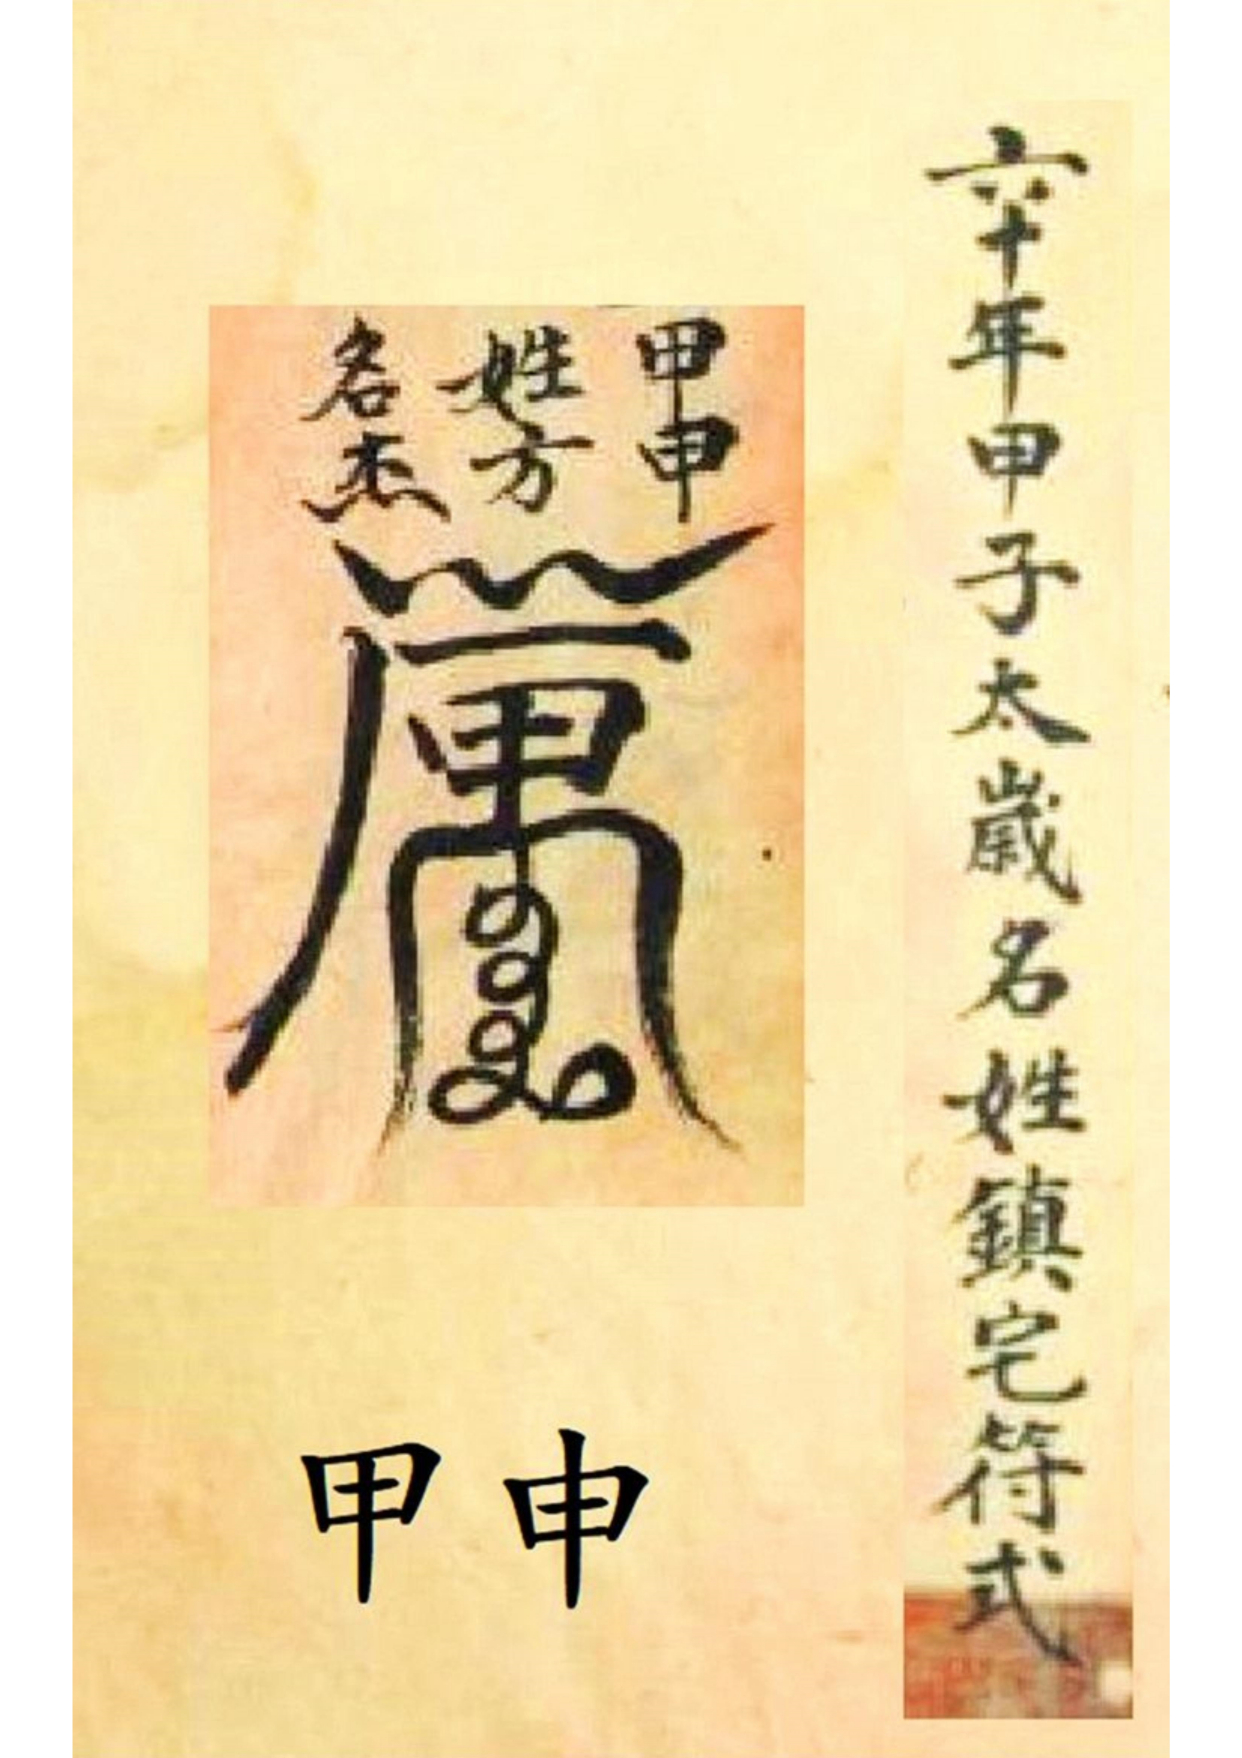 六十年甲子太歲名姓鎮宅符式
甲申
姓方
名杰
甲申